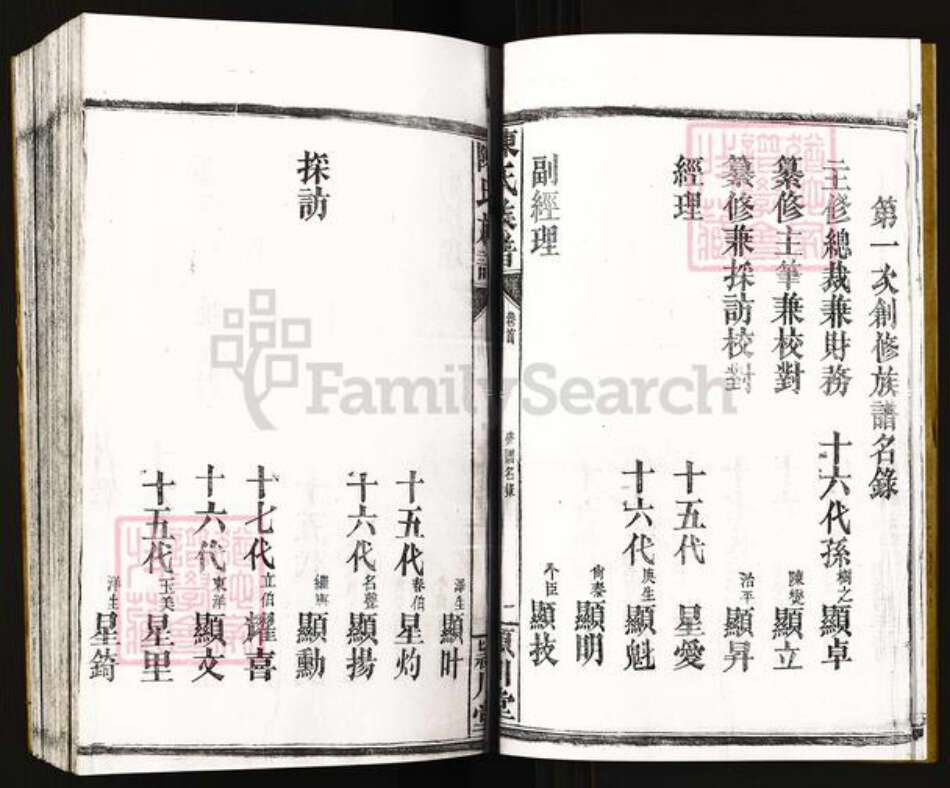 第一次創修族譜名錄
主修總裁兼財務 十六代孫 樹之 顯卓
纂修主筆兼校對 陳變 顯立
纂修兼採訪校對 治平 顯昇
經理 十五代 星愛
十六代 庚生 顯魁
尚泰 顯明
副經理 不臣 顯技
陳氏族譜 卷首 名錄 二 潁川堂
澤生 顯叶
十五代 春伯 星灼
十六代 名聲 顯揚
採訪 顯勳
十七代 立伯 耀喜
十六代 東洋 顯文
十五代 玉美 星里
洋生 星錡
FamilySearch